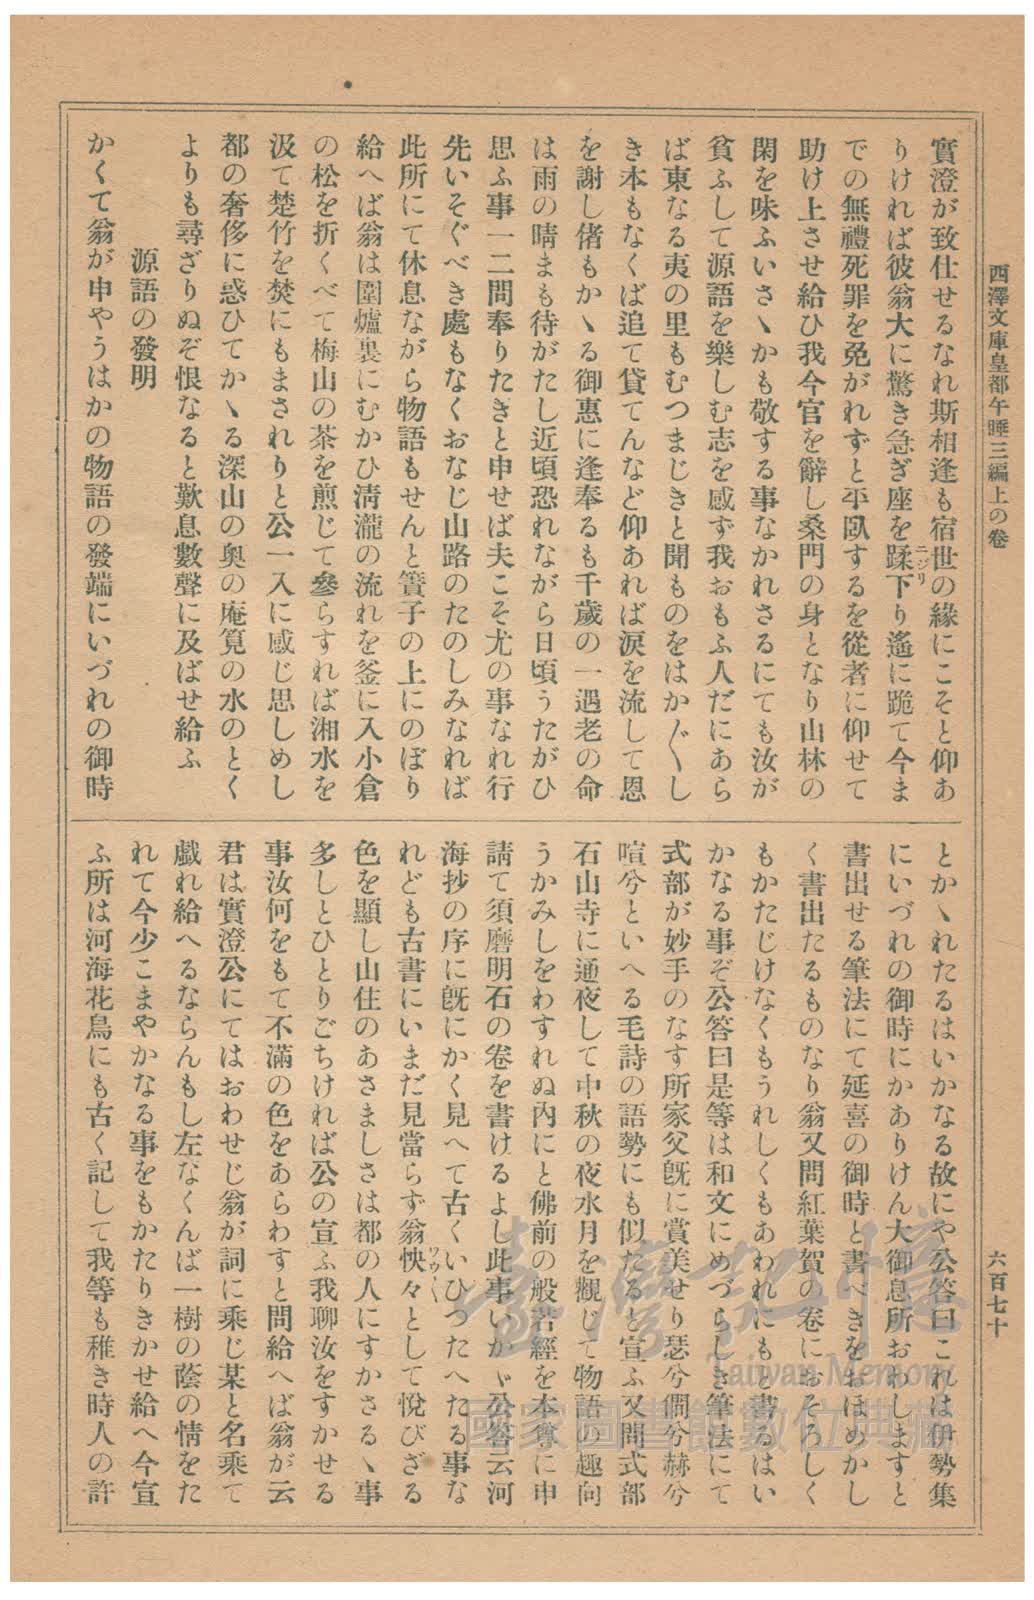 西澤文庫皇都午睡三編上の卷
六百七十
實澄が致仕せるなれ斯相逢も宿世の緣にこそと仰あ
りければ彼翁大に驚き急ぎ座を蹂下り遙に跪て今ま
ニジリ
での無禮死罪を免がれずと平臥するを從者に仰せて
助け上させ給ひ我今官を辭し桑門の身となり山林の
閑を味ふいさゝかも敬する事なかれさるにても汝が
貧ふして源語を樂しむ志を感ず我おもふ人だにあら
ば東なる夷の里もむつまじきと聞ものをはか〴〵し
き本もなくば追て貸てんなど仰あれば涙を流して恩
を謝し偖もかゝる御惠に逢奉るも千歲の一遇老の命
は雨の晴まも待がたし近頃恐れながら日頃うたがひ
思ふ事一二問奉りたきと申せば夫こそ尤の事なれ行
先いそぐべき處もなくおなじ山路のたのしみなれば
此所にて休息ながら物語もせんと簀子の上にのぼり
給へば翁は圍爐裏にむかひ淸瀧の流れを釜に入小倉
の松を折くべて梅山の茶を煎じて參らすれば湘水を
汲て楚竹を焚にもまされりと公一入に感じ思しめし
都の奢侈に惑ひてかゝる深山の奥の庵筧の水のとく
よりも尋ざりぬぞ恨なると歎息數聲に及ばせ給ふ
源語の發明
かくて翁が申やうはかの物語の發端にいづれの御時
とかゝれたるはいかなる故にや公答曰これは伊勢集
にいづれの御時にかありけん大御息所おわしますと
書出せる筆法にて延喜の御時と書べきをおほめかし
く書出たるものなり翁又問紅葉賀の卷におそろしく
もかたじけなくもうれしくもあわれにもと書るはい
かなる事ぞ公答曰是等は和文にめづらしき筆法にて
式部が妙手のなす所家父旣に賞美せり瑟兮僩兮赫兮
喧兮といへる毛詩の語勢にも似たると宣ふ又問式部
石山寺に通夜して中秋の夜水月を觀じて物語の趣向
うかみしをわすれぬ內にと佛前の般若經を本尊に申
請て須磨明石の卷を書けるよし此事いかゞ公答云河
海抄の序に旣にかく見へて古くいひつたへたる事な
れども古書にいまだ見當らず翁怏々として悅びざる
ワウ〳〵
色を顯し山住のあさましさは都の人にすかさるゝ事
多しとひとりごちければ公の宣ふ我聊汝をすかせる
事汝何をもて不滿の色をあらわすと問給へば翁が云
君は實澄公にてはおわせじ翁が詞に乘じ某と名乘て
戯れ給へるならんもし左なくんば一樹の蔭の情をた
れて今少こまやかなる事をもかたりきかせ給へ今宣
ふ所は河海花鳥にも古く記して我等も稚き時人の許
臺灣記憶
Taiwan Memory
國家圖書館數位典藏